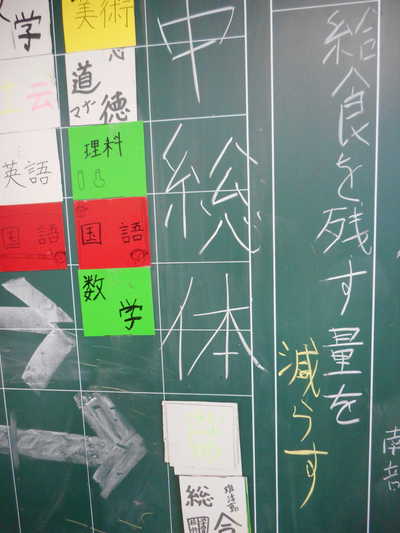 給食を残す量を
減らす
中総体
美術
道徳
理科
国語
数学
総
学
英語
国語